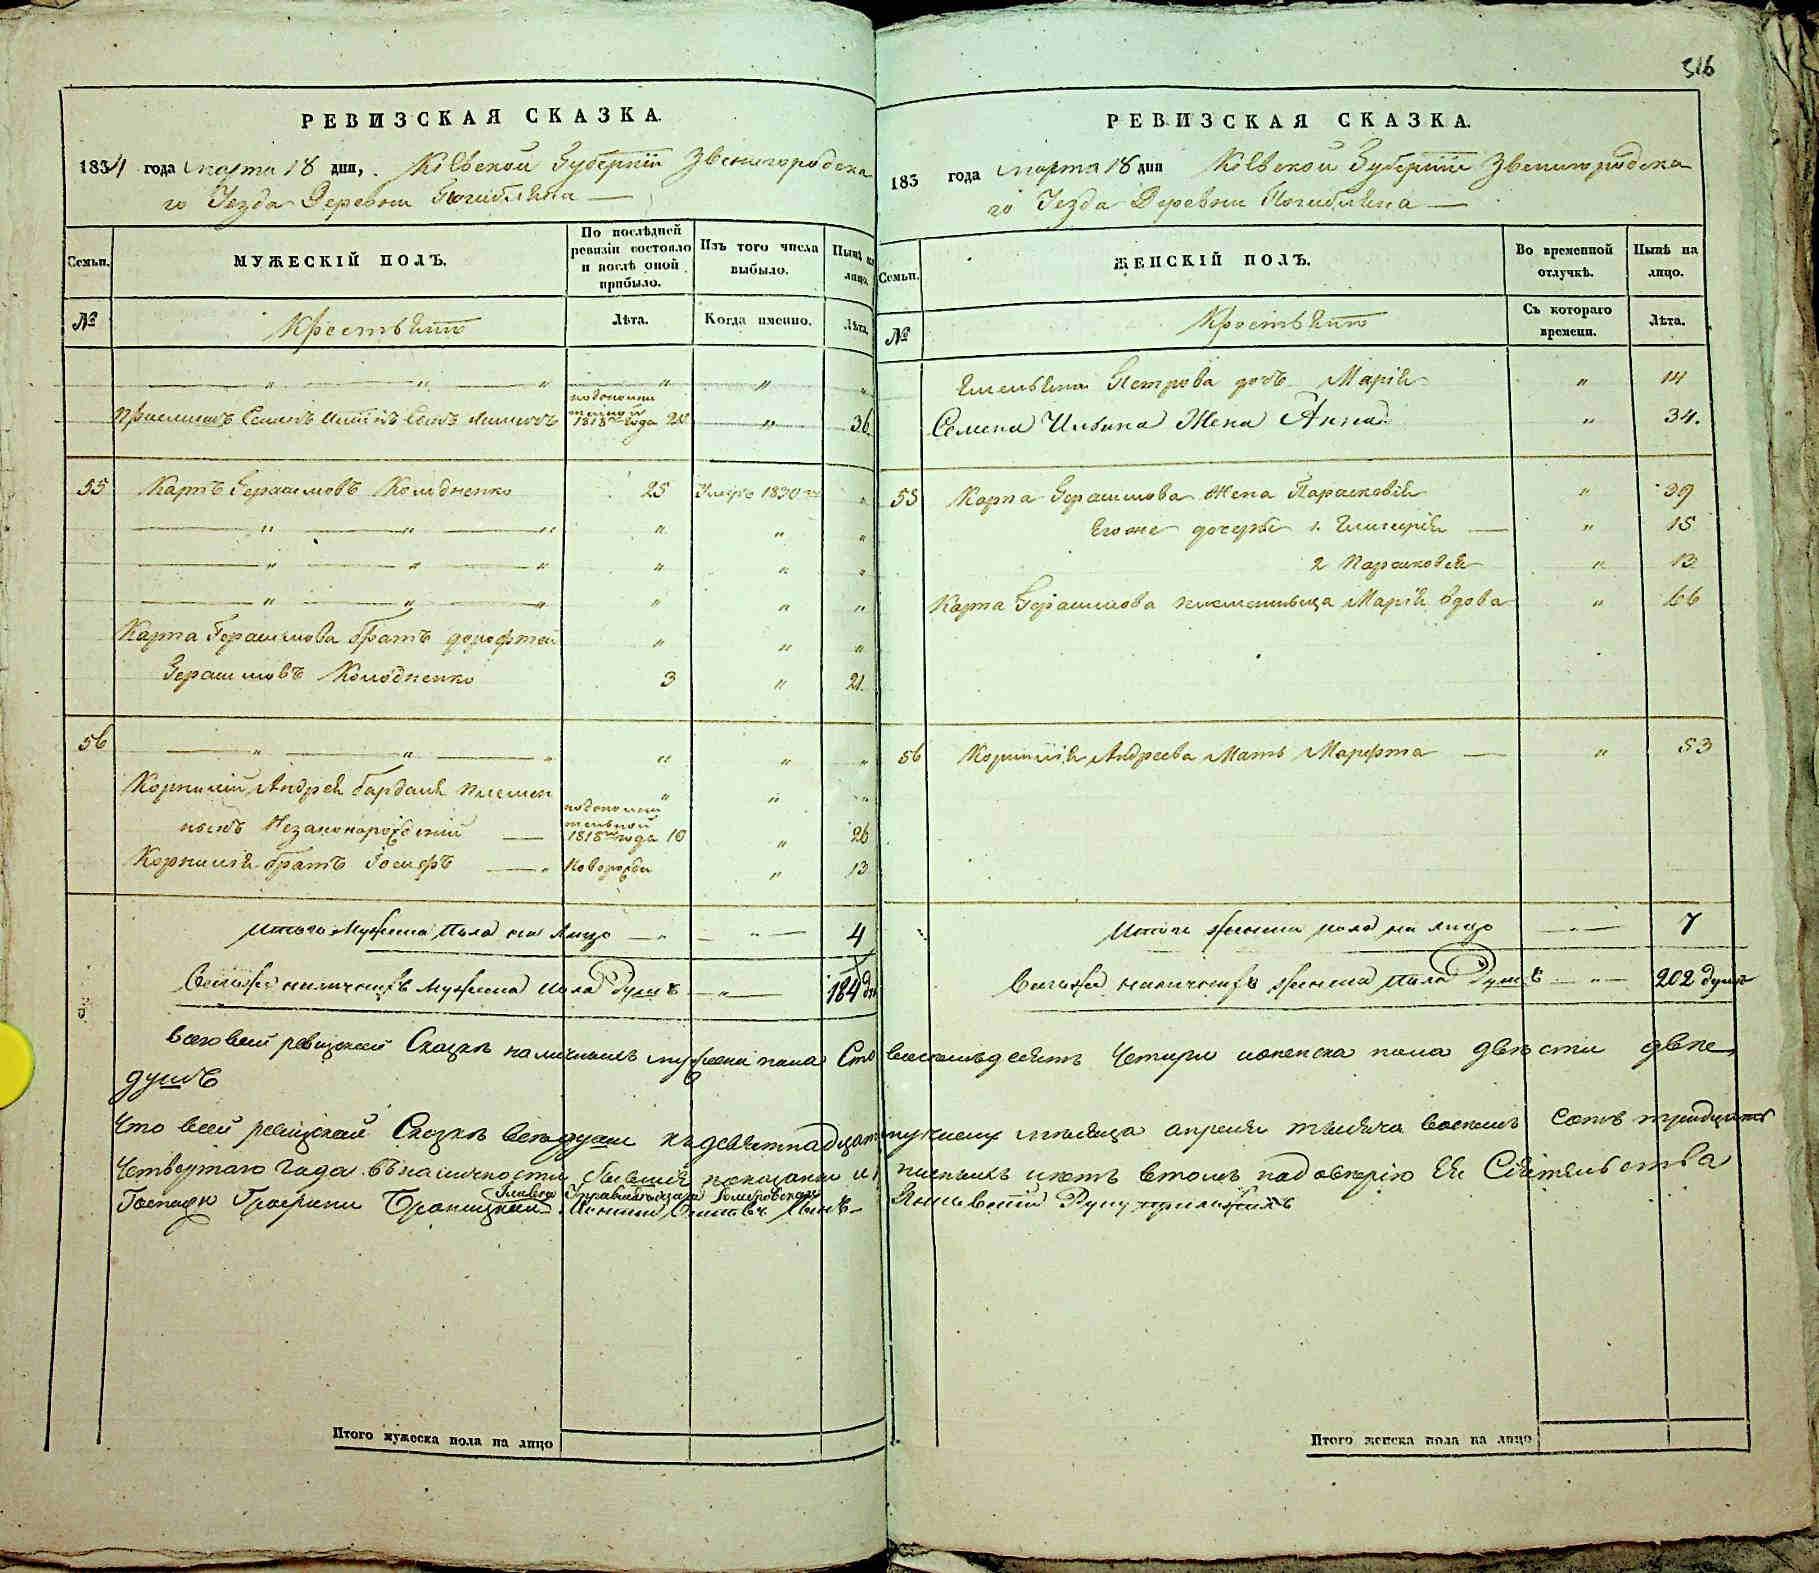 316
РЕВИЗСКАЯ СКАЗКА.
1834 года марта 18 дня, Кіевской Губерніи Звенигородска
го Уезда Деревни Погибляка
Семьи.
МУЖЕСКІЙ ПОЛЪ.
По послѣдней ревизіи состояло и послѣ оной прибыло.
Изъ того числа выбыло.
Нынѣ на лицо.
№
Крестьяне
Лѣта.
Когда именно.
Лѣта.
по дополни
тельной
Семенъ 1818 года 20 " 36.
55 Карпъ Герасимовъ Колодненко 25 Умеръ 1830 "
Карпа Герасимова братъ дорофтей " " "
Герасимовъ Колодненко 3 " 21.
56
Корнилій Андрея племян " " "
по дополни
тельной
никъ Незаконорожденный 1818 года 10 " 26
Корнилія братъ Іосифъ Новорожден " 13
Итого Мужеска Пола на Лицо 4
Всего наличныхъ Мужеска Пола Душъ 184
РЕВИЗСКАЯ СКАЗКА.
183 года марта 18 дня Кіевской Губерніи Звенигородска
го Уезда Деревни Погибляка
Семьи.
ЖЕНСКІЙ ПОЛЪ.
Во временной отлучкѣ.
Нынѣ на лицо.
№
Крестьяне
Съ котораго времени.
Лѣта.
Емельяна Петрова дочь Марія " 14
Семена Ильина Жена Анна " 34.
55 Карпа Герасимова Жена Парасковія " 39
Егоже дочери 1. Гликерія " 15
2 Парасковія " 13
Карпа Герасимова племянница Марія вдова " 66
56 Корнилія Андреева Мать Марфта " 53
Итого женска пола на лицо 7
Всего наличныхъ женска Пола Душъ 202 душъ
Всего въ сей ревизской Сказке наличныхъ мужеска пола Сто восемьдесятъ Четыри и женска пола двѣсти две
душъ
Что в сей ревизской Сказке все души къ девятнадцатому числу месяца апреля тысяча восемь сотъ тридцать
Четвертаго Года въ наличности показаны и въ томъ по доверію Ея Сіятельства
Госпожи Графини Браницкой
Итого мужеска пола на лицо
Итого женска пола на лицо